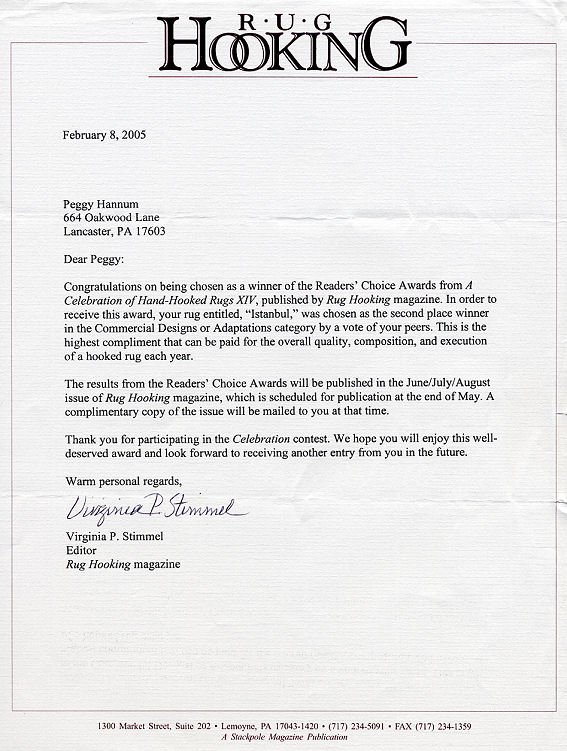 R·U·G
HOOKING
February 8, 2005
Peggy Hannum
664 Oakwood Lane
Lancaster, PA 17603
Dear Peggy:
Congratulations on being chosen as a winner of the Readers' Choice Awards from A
Celebration of Hand-Hooked Rugs XIV, published by Rug Hooking magazine. In order to
receive this award, your rug entitled, “Istanbul,” was chosen as the second place winner
in the Commercial Designs or Adaptations category by a vote of your peers. This is the
highest compliment that can be paid for the overall quality, composition, and execution
of a hooked rug each year.
The results from the Readers' Choice Awards will be published in the June/July/August
issue of Rug Hooking magazine, which is scheduled for publication at the end of May. A
complimentary copy of the issue will be mailed to you at that time.
Thank you for participating in the Celebration contest. We hope you will enjoy this well-
deserved award and look forward to receiving another entry from you in the future.
Warm personal regards,
Virginia P. Stimmel
Virginia P. Stimmel
Editor
Rug Hooking magazine
1300 Market Street, Suite 202 • Lemoyne, PA 17043-1420 • (717) 234-5091 • FAX (717) 234-1359
A Stackpole Magazine Publication